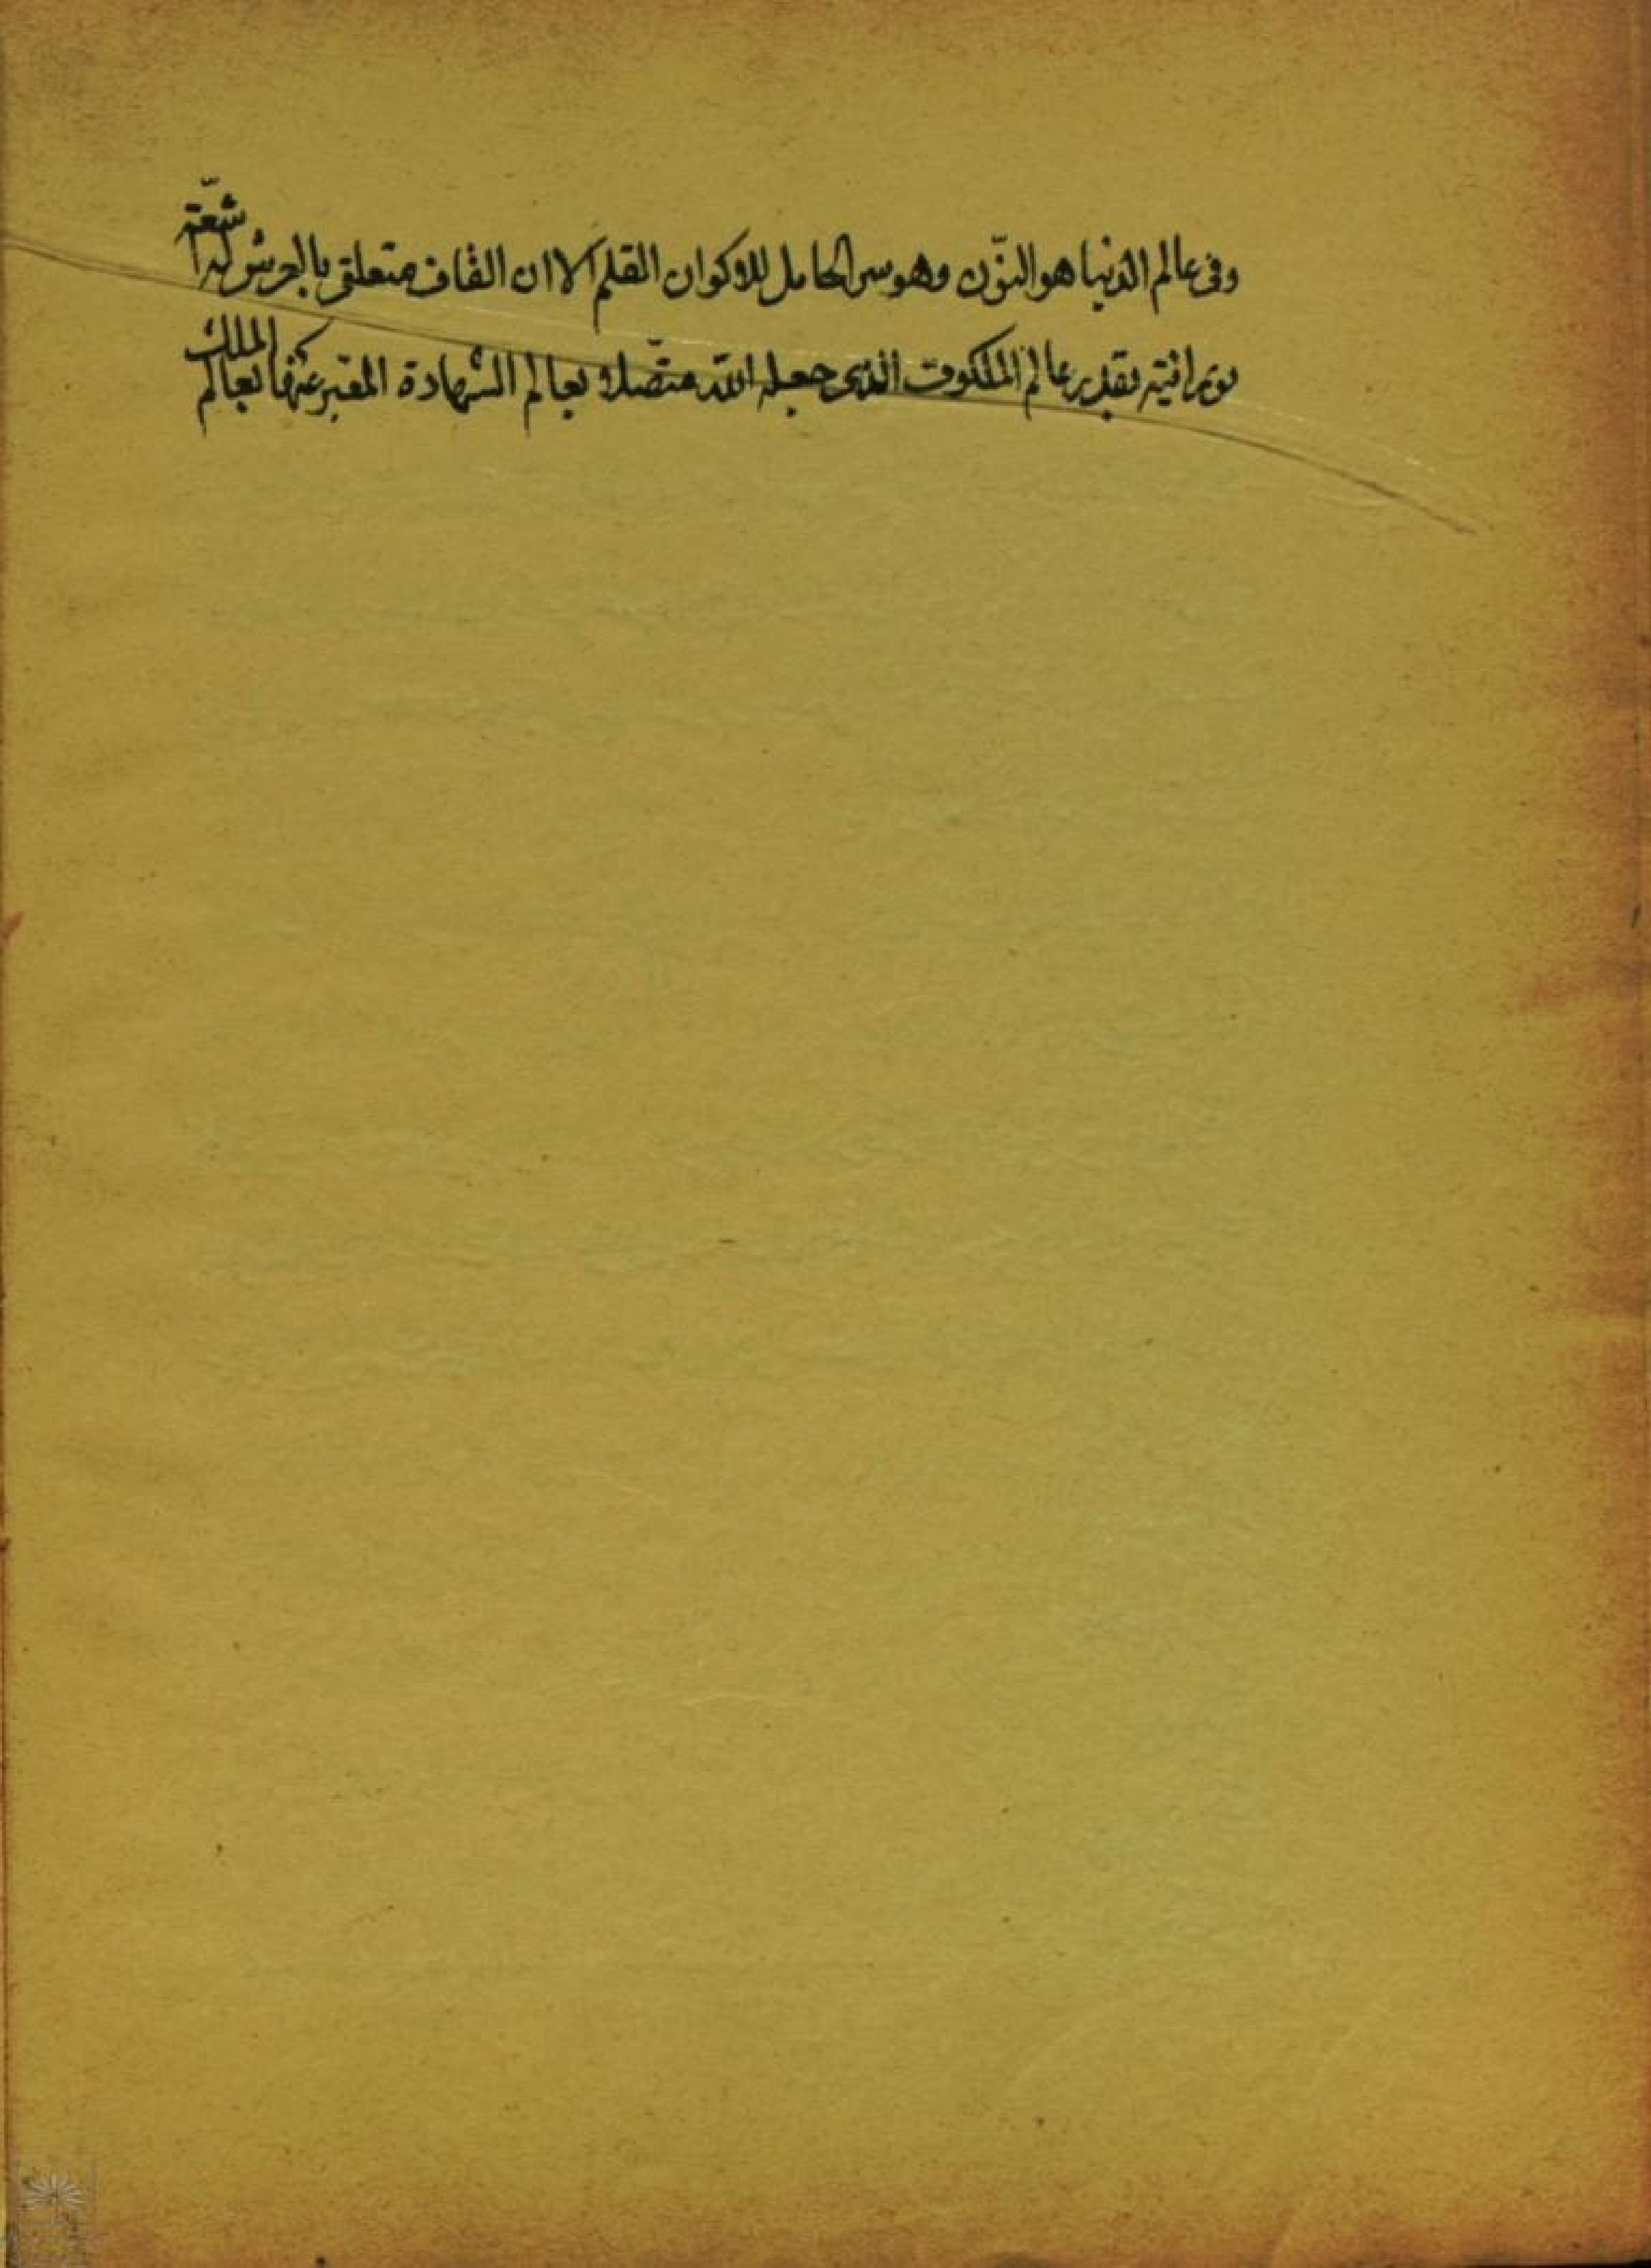 وفى عالم الدنيا هو النّون وهو سر الحامل للاكوان القلم الا ان القاف متعلق بالعرش له اشعّة
نورانية بقدر عالم الملكوت الذى جعله الله متّصلا بعالم الشهادة المعبر عنها بعالم الملك